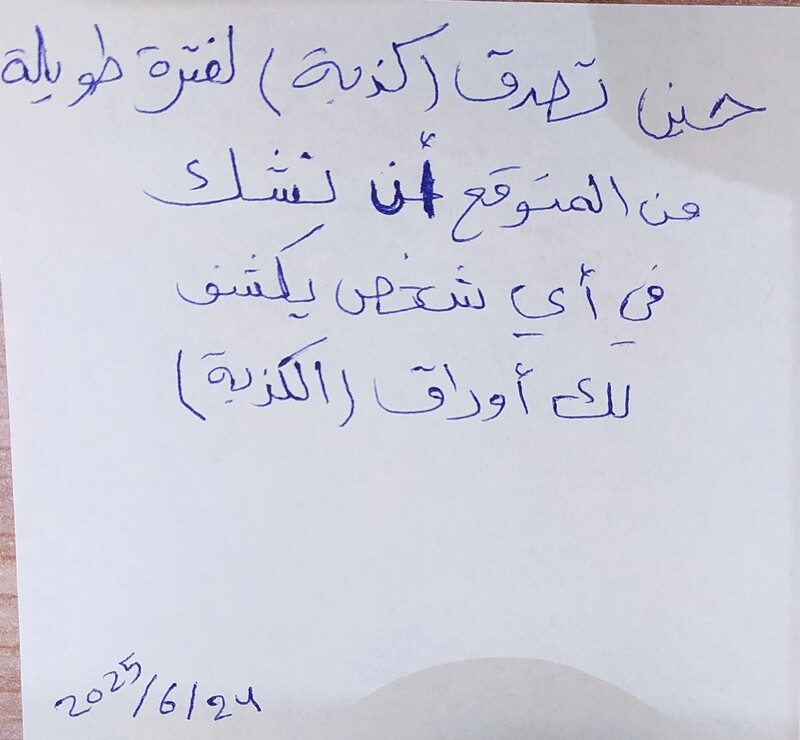 حين تصدق (كذبة) لفترة طويلة
من المتوقع أن تشك
في أي شخص يكشف
لك أوراق (الكذبة)
2025/6/24